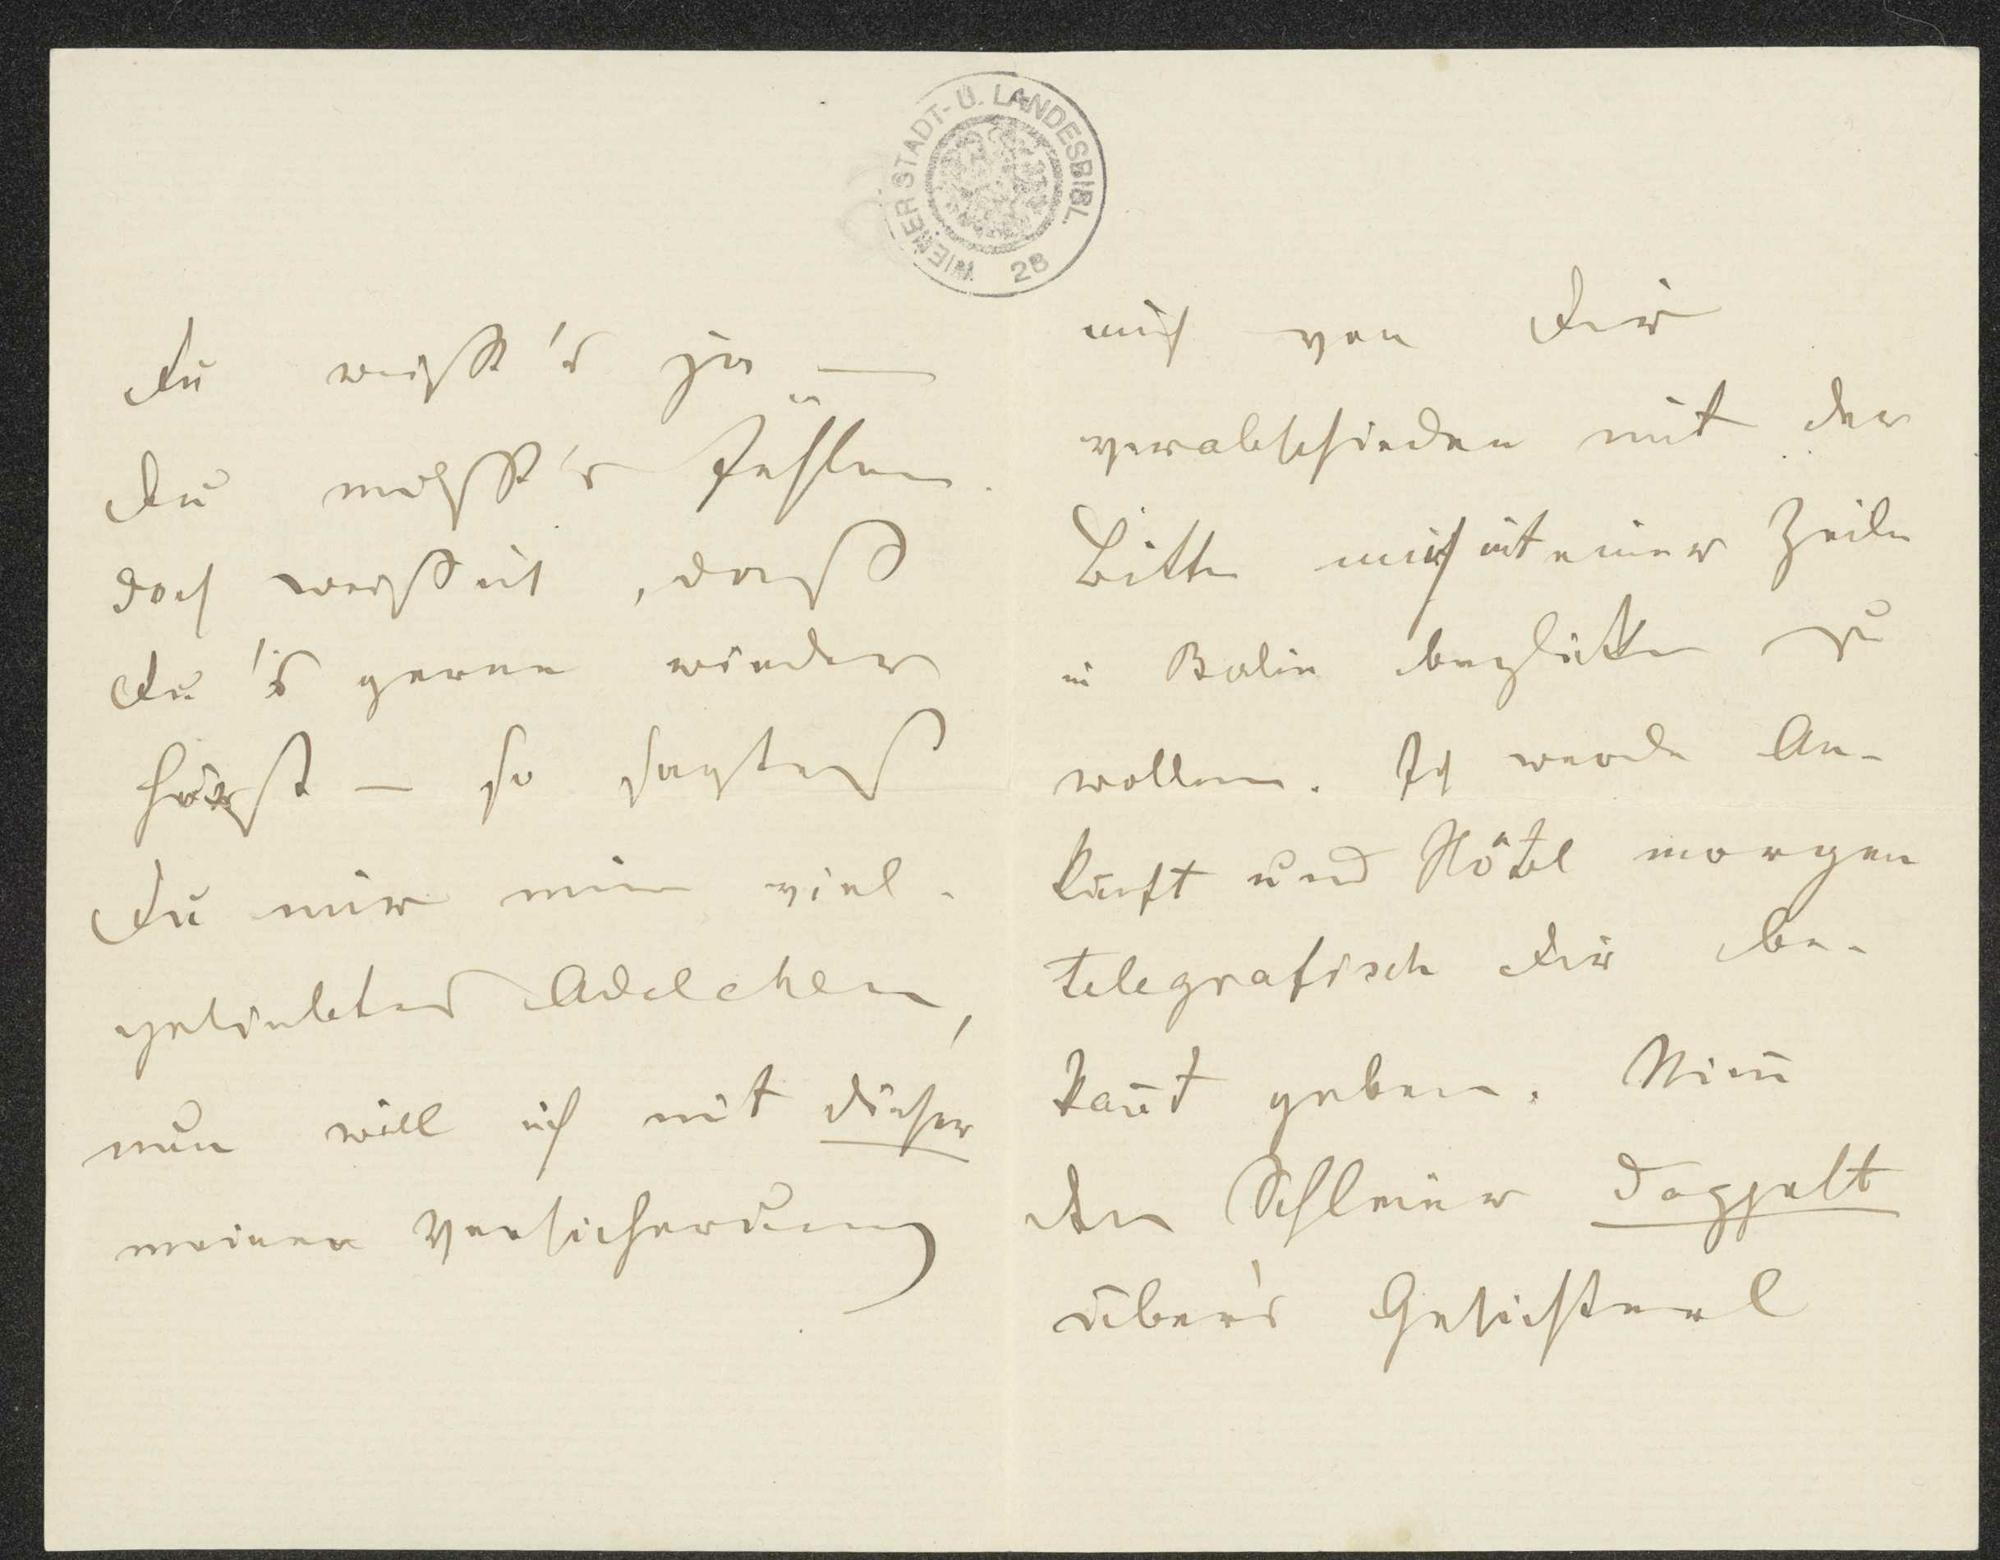 WIENER STADT- U. LANDESBIBL.
28
Du weißt's ja —
Du mußt's fühlen.
doch weiß ich, daß
Du's gerne wieder
hörst — so sagtest
Du mir mein viel-
geliebtes Adelchen,
nun will ich mit dieser
meiner Versicherung
mich von Dir
verabschieden mit der
Bitte mich mit einer Zeile
in Berlin beglücken zu
wollen. Ich werde An-
kunft und Hôtel morgen
telegrafisch Dir be-
kannt geben. Nim̄
den Schleier doppelt
über's Gesichterl